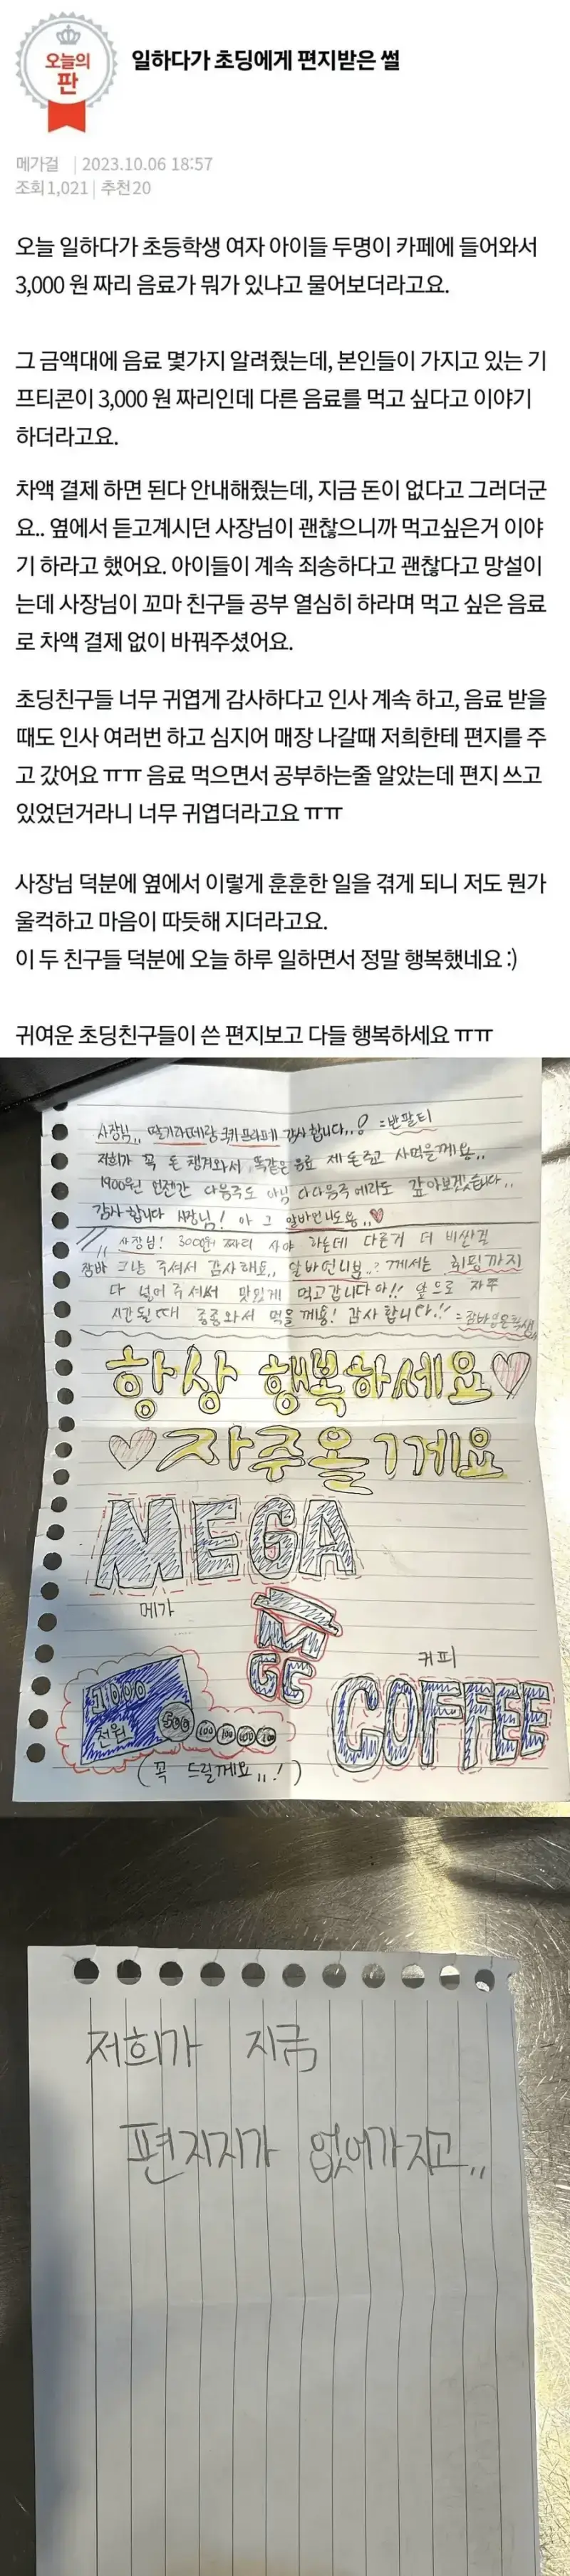 오늘의
판
일하다가 초딩에게 편지받은 썰
메가걸 | 2023.10.06 18:57
조회 1,021 | 추천 20
오늘 일하다가 초등학생 여자 아이들 두명이 카페에 들어와서
3,000 원 짜리 음료가 뭐가 있냐고 물어보더라고요.
그 금액대에 음료 몇가지 알려줬는데, 본인들이 가지고 있는 기
프티콘이 3,000 원 짜리인데 다른 음료를 먹고 싶다고 이야기
하더라고요.
차액 결제 하면 된다 안내해줬는데, 지금 돈이 없다고 그러더군
요.. 옆에서 듣고계시던 사장님이 괜찮으니까 먹고싶은거 이야
기 하라고 했어요. 아이들이 계속 죄송하다고 괜찮다고 망설이
는데 사장님이 꼬마 친구들 공부 열심히 하라며 먹고 싶은 음료
로 차액 결제 없이 바꿔주셨어요.
초딩친구들 너무 귀엽게 감사하다고 인사 계속 하고, 음료 받을
때도 인사 여러번 하고 심지어 매장 나갈때 저희한테 편지를 주
고 갔어요 ㅠㅠ 음료 먹으면서 공부하는줄 알았는데 편지 쓰고
있었던거라니 너무 귀엽더라고요 ㅠㅠ
사장님 덕분에 옆에서 이렇게 훈훈한 일을 겪게 되니 저도 뭔가
울컥하고 마음이 따듯해 지더라고요.
이 두 친구들 덕분에 오늘 하루 일하면서 정말 행복했네요 :)
귀여운 초딩친구들이 쓴 편지보고 다들 행복하세요 ㅠㅠ
사장님,, 딸기라떼랑 쿠키프라페 감사합니다..! =반팔티
저희가 꼭 돈 챙겨와서 똑같은 음료 제돈주고 사먹을께용..
1900원 언젠간 다음주도 아님 다다음주 에라도 갚아보겠습니다..
감사합니다 사장님! 아 그 알바언니도용..♥
사장님! 3000원 짜리 사야 하는데 다른거 더 비싼걸
그냥 주셔서 감사해요.. 알바언니분..? 께서는 휘핑까지
다 넣어주셔서 맛있게 먹고갑니다아!! 앞으로 자주
시간될때 종종와서 먹을께용! 감사합니다!!
항상 행복하세요♡
♡자주올게요
MEGA
메가
M
GC
커피
COFFEE
1000
천원
500 100 100 100 100
(꼭 드릴께요..!)
저희가 지금
편지지가 없어가지고..